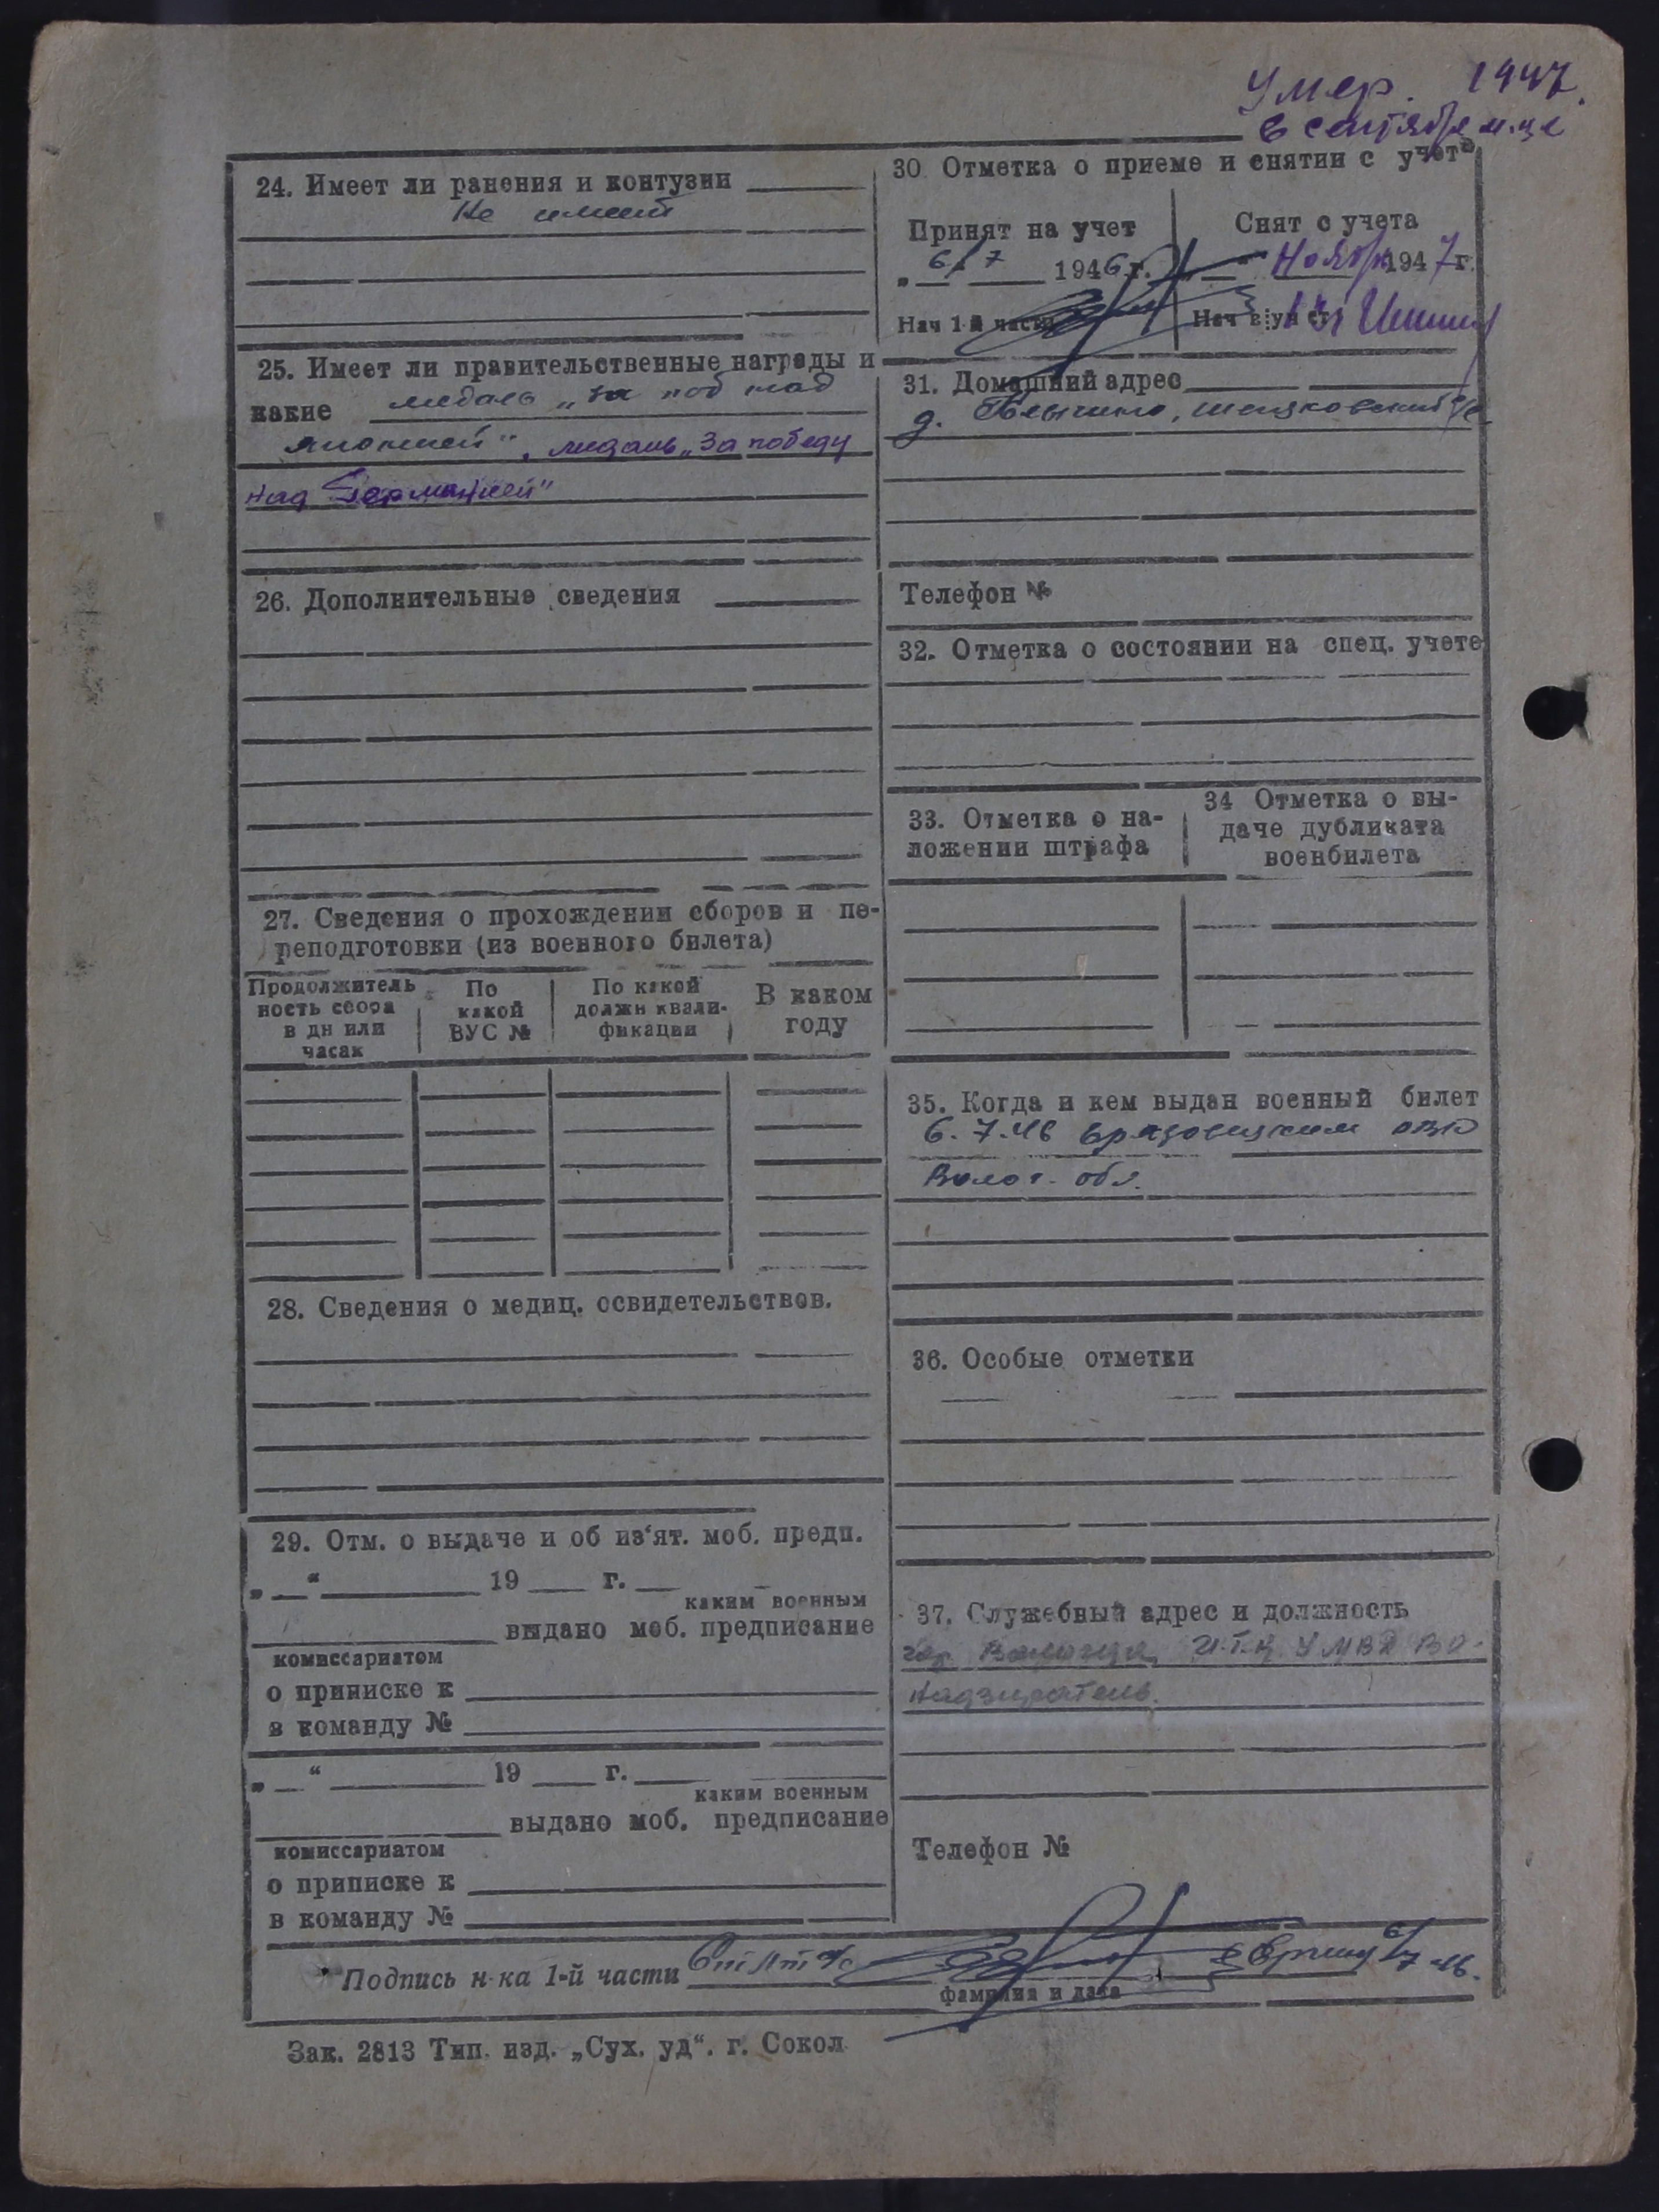 Умер. 1947.
в сентябре м-це
24. Имеет ли ранения и контузии
Не имеет
25. Имеет ли правительственные награды и
какие медаль „за поб над
японией", медаль „За победу
над Германией"
26. Дополнительные сведения
27. Сведения о прохождении сборов и пе-
реподготовки (из военного билета)
Продолжитель
ность сбора
в дн или
часах
По
какой
ВУС №
По какой
должн квали-
фикации
В каком
году
28. Сведения о медиц. освидетельствов.
29. Отм. о выдаче и об из'ят. моб. предп.
„ “ 19 г.
каким военным
выдано моб. предписание
комиссариатом
о приписке к
в команду №
„ “ 19 г.
каким военным
выдано моб. предписание
комиссариатом
о приписке к
в команду №
30 Отметка о приеме и снятии с учета
Принят на учет
„ 6/7 1946 г.
Нач 1-й части
Снят с учета
„ “ Ноябрь 1947 г.
Нач
31. Домашний адрес
д.
Телефон №
32. Отметка о состоянии на спец. учете
33. Отметка о на-
ложении штрафа
34 Отметка о вы-
даче дубликата
военбилета
35. Когда и кем выдан военный билет
6.7.46
Волог. обл.
36. Особые отметки
37. Служебный адрес и должность
гор. Вологда, УМВД ВО-
Надзиратель.
Телефон №
Подпись н-ка 1-й части 6/7 46.
фамилия и дата
Зак. 2813 Тип. изд. „Сух. уд“. г. Сокол